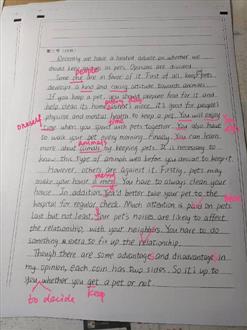 第二节（满分
Recently we have a heated debate on whether we
should keep pets. Opinions are divided.
people
Some are in favor of it. First of all, keep pets
develops a kind and caring attitude towards animals.
If you keep a pet, you should prepare food for it and
help clean its
more. It's good for people's
physical and mental health to keep a pet. You will enjoy
oneself
time
time when you spend with pets together. You also have
to walk your pet every morning. Finally, You can learn
animals
more about animals by keeping pets. It is necessary to
know this type of animal well before you
to keep it.
However, others are against it. Firstly, pets may
make your house a mess. You have to always clean your
house. In addition, You'd better take your pet to the
hospital for regular check. Much attention is paid on pets.
Last but not least, your pet's noises are likely to affect
the relationship with your neighbors. You have to do
something to fix up the relationship.
Though there are some advantages and disadvantages in
my opinion, each coin has two sides. So it's up to
you whether you get a pet or not.
to decide
keep